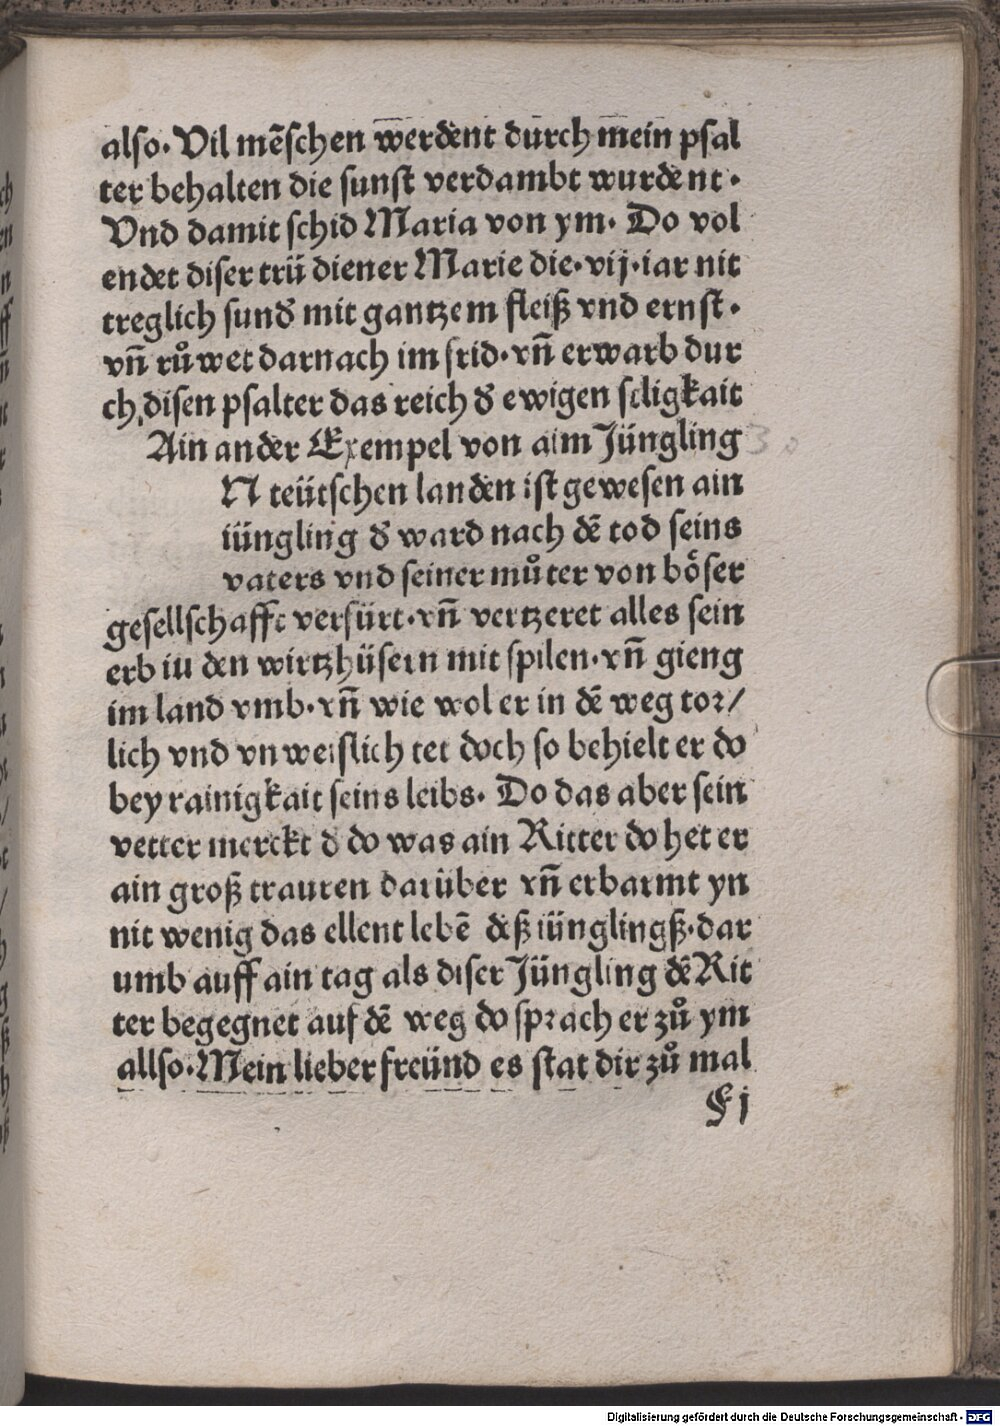 also. Vil mẽschen werdent durch mein psal
ter behalten die sunst verdambt wurdent.
Vnd damit schid Maria von ym. Do vol
endet diser trü diener Marie die.vij.iar nit
treglich sund̕ mit gantzem fleiß vnd ernst.
vñ růwet darnach im frid.vñ erwarb dur
ch disen psalter das reich d̕ ewigen seligkait
Ain ander Exempel von aim Jüngling
N teütschen landen ist gewesen ain
iüngling d̕ ward nach dẽ tod seins
vaters vnd seiner můter von böser
gesellschafft verfürt.vñ vertzeret alles sein
erb in den wirtzhüsern mit spilen.vñ gieng
im land vmb.vñ wie wol er in dẽ weg tor/
lich vnd vnweislich tet doch so behielt er do
bey rainigkait seins leibs. Do das aber sein
vetter merckt d̕ do was ain Ritter do het er
ain groß trauren darüber vñ erbarmt yn
nit wenig das ellent lebẽ deß iünglingß.dar
umb auff ain tag als diser Jüngling dẽ Rit
ter begegnet auf dẽ weg do sprach er zů ym
allso.Mein lieber freünd es stat dir zů mal
E j
30
Digitalisierung gefördert durch die Deutsche Forschungsgemeinschaft - DFG